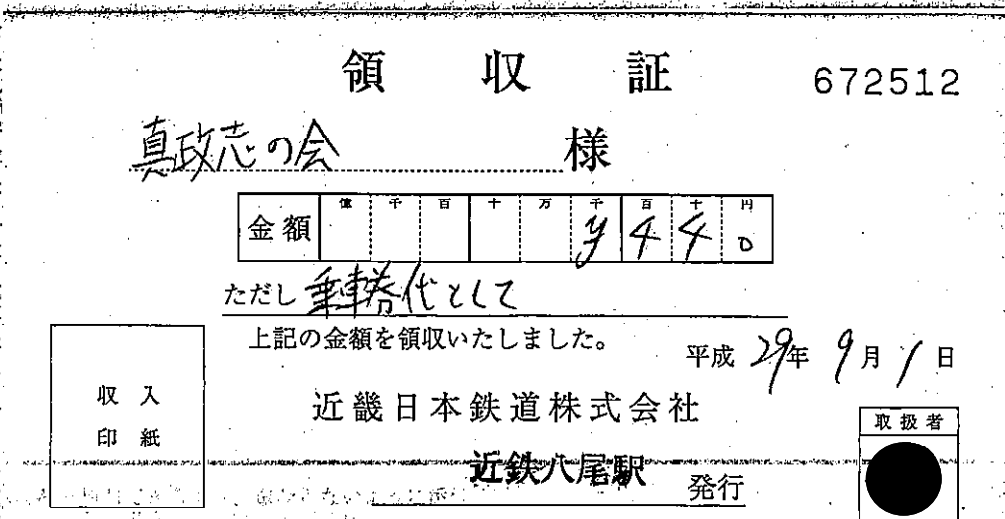 領収証 672512
真政志の会 様
億 千 百 十 万 千 百 十 円
金額 ¥440
ただし 乗車券代として
上記の金額を領収いたしました。
平成 29年 9月 1日
収入
印紙
近畿日本鉄道株式会社
取扱者
近鉄八尾駅 発行